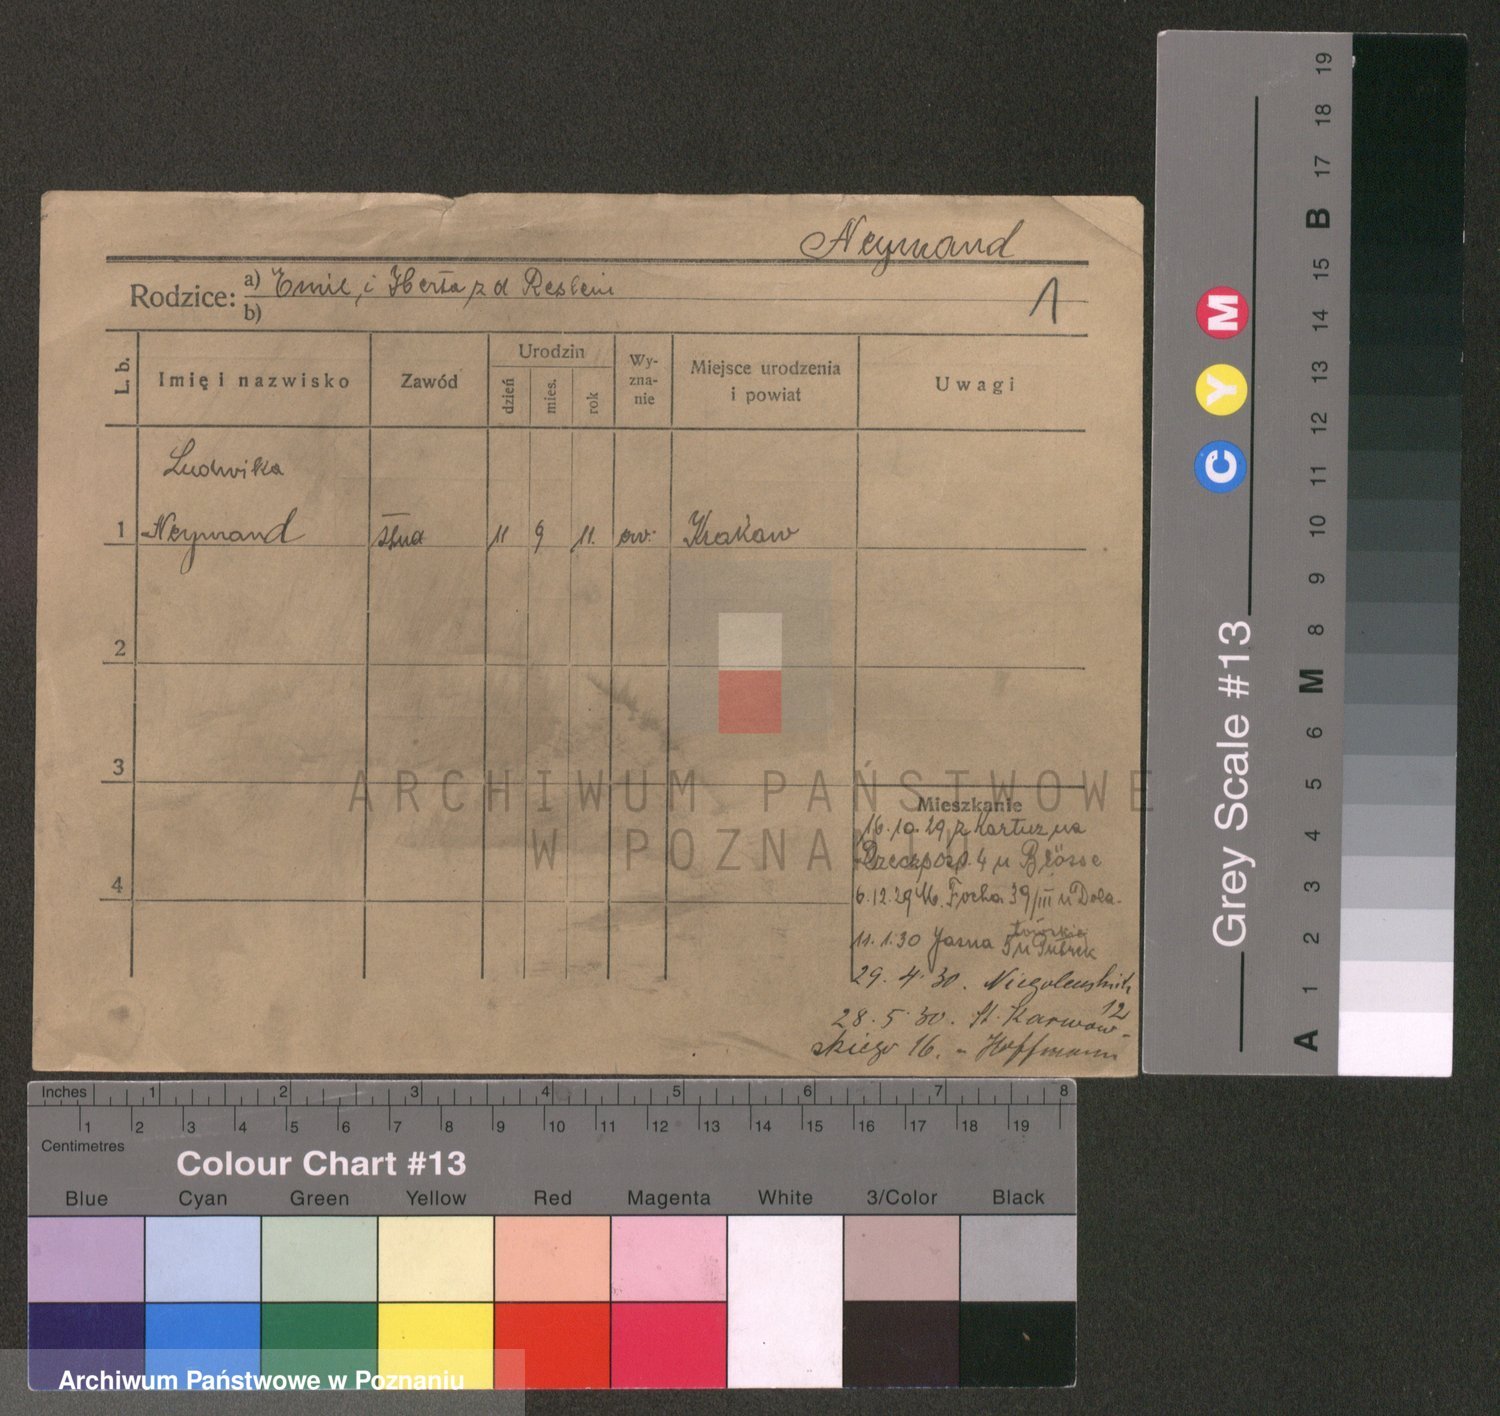 Neymand
Rodzice: a) Emil, i Herta, z d Resleni
b)
1
L. b.
Imię i nazwisko
Zawód
Urodzin
dzień
mies.
rok
Wy-
zna-
nie
Miejsce urodzenia
i powiat
Uwagi
Ludwika
1 Neymand stud 11 9 11. ew. Krakow
2
3
4
Mieszkanie
16.10.29 z Kartuz na
Rzeczposp. 4 u Blösse
6.12.29 M. Focha 39/III u Dola-
towskiej
11.1.30 Jasna 5 u
29.4.30. Niegolewskich
12
28.5.30. St. Karwow-
skiego 16. - Hoffmann
ARCHIWUM PAŃSTWOWE
W POZNANIU
Grey Scale #13
C Y M
A 1 2 3 4 5 6 M 8 9 10 11 12 13 14 15 B 17 18 19
Inches 1 2 3 4 5 6 7 8
1 2 3 4 5 6 7 8 9 10 11 12 13 14 15 16 17 18 19
Centimetres
Colour Chart #13
Blue Cyan Green Yellow Red Magenta White 3/Color Black
Archiwum Państwowe w Poznaniu